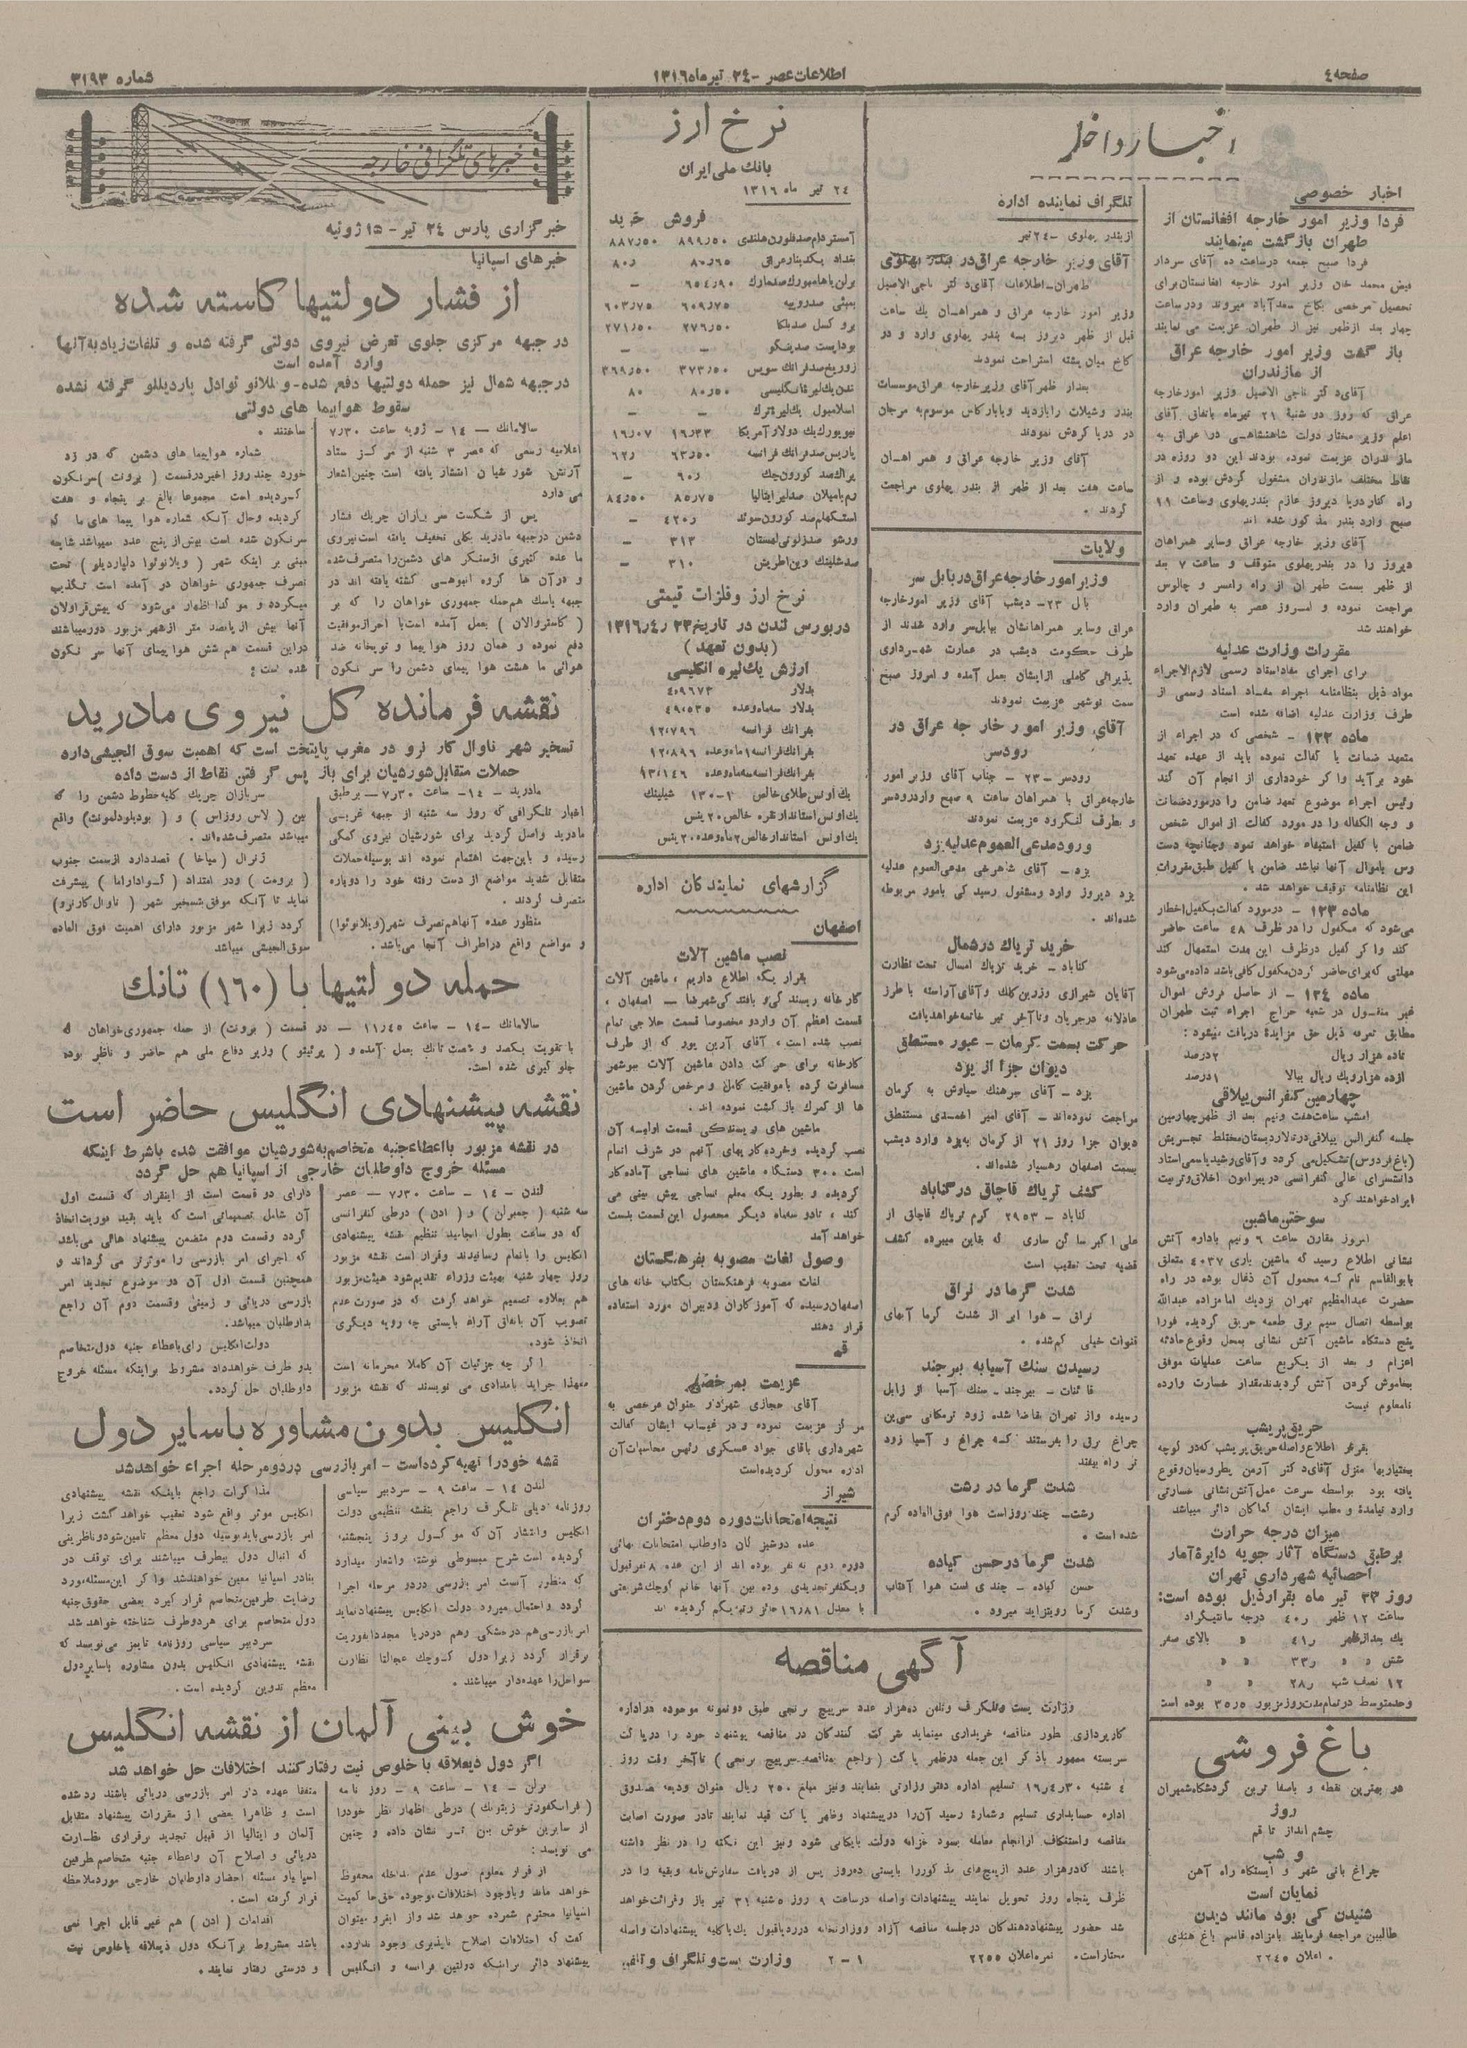 صفحه ٤
اطلاعات عصر - ٢٤ تیر ماه ١٣١٦
شماره ٣١٩٣
اخبار داخله
اخبار خصوصی
فردا وزیر امور خارجه افغانستان از
طهران بازگشت مینمایند
فردا صبح جمعه درساعت ده آقای سردار
فیض محمد خان وزیر امور خارجه افغانستان برای
تحصیل مرخصی بکاخ سعدآباد میروند ودرساعت
چهار بعد ازظهر نیز از طهران عزیمت می نمایند
باز گشت وزیر امور خارجه عراق
از مازندران
آقای دکتر ناجی الاصیل وزیر امور خارجه
عراق که روز دو شنبهٔ ٢١ تیرماه باتفاق آقای
اعلم وزیر مختار دولت شاهنشاهی در عراق به
مازندران عزیمت نموده بودند این دو روزه در
نقاط مختلف مازندران مشغول گردش بوده و از
راه کنار دریا دیروز عازم بندر پهلوی وساعت ١١
صبح وارد بندر مذکور شده اند
آقای وزیر خارجه عراق وسایر همراهان
دیروز را در بندرپهلوی متوقف و ساعت ٧ بعد
از ظهر بسمت طهران از راه رامسر و چالوس
مراجعت نموده و امروز عصر به طهران وارد
خواهند شد
مقررات وزارت عدلیه
برای اجرای مفاد اسناد رسمی لازم الاجراء
مواد ذیل بنظامنامه اجراء مفاد اسناد رسمی از
طرف وزارت عدلیه اضافه شده است
ماده ١٢٢ - شخصی که در اجراء از
متعهد ضمانت یا کفالت نموده باید از عهده تعهد
خود برآید والا خودداری از انجام آن کند
رئیس اجراء موضوع تعهد ضامن را درمورد ضمانت
و وجه الکفاله را در مورد کفالت از اموال شخص
ضامن یا کفیل استیفاء خواهد نمود وچنانچه دست
رس باموال آنها نباشد ضامن یا کفیل طبق مقررات
این نظامنامه توقیف خواهد شد .
ماده ١٢٣ - درمورد کفالت بکفیل اخطار
می‌شود که مکفول را در ظرف ٤٨ ساعت حاضر
کند واگر کفیل درظرف این مدت استمهال کند
مهلتی که برای حاضر کردن مکفول کافی باشد داده می‌شود
ماده ١٢٤ - از حاصل فروش اموال
غیر منقول در شعبه حراج اجراء ثبت طهران
مطابق تعرفه ذیل حق مزایده دریافت میشود :
تا ده هزار ریال ٢ درصد
از ده هزار و یک ریال ببالا ١ درصد
چهارمین کنفرانس ییلاقی
امشب ساعت هفت ونیم بعد از ظهر چهارمین
جلسه کنفرانس ییلاقی در تالار دبستان مختلط تجریش
(باغ فردوس) تشکیل می گردد و آقای رشید یاسمی استاد
دانشسرای عالی کنفرانسی در پیرامون اخلاق و تربیت
ایراد خواهند کرد
سوختن ماشین
امروز مقارن ساعت ٦ ونیم باداره آتش
نشانی اطلاع رسید که ماشین باری ٤٠٣٧ متعلق
بابوالقاسم نام که محمول آن ذغال بوده در راه
حضرت عبدالعظیم تهران نزدیک امامزاده عبدالله
بواسطه اتصال سیم برق طعمه حریق گردیده فورا
پنج دستگاه ماشین آتش نشانی بمحل وقوع حادثه
اعزام و بعد از یکربع ساعت عملیات موفق
بخاموش کردن آتش گردیدند مقدار خسارت وارده
نامعلوم نیست
حریق پریشب
بقرار اطلاع واصله حریق پریشب که در کوچه
بختیاریها منزل آقای دکتر آرمن پطروسیان وقوع
یافته بود بواسطه سرعت عمل آتش نشانی خسارتی
وارد نیامده و مطب ایشان کماکان دائر میباشد
میزان درجه حرارت
بر طبق دستگاه آثار جویه دایرهٔ آمار
احصائیه شهرداری تهران
روز ٢٣ تیر ماه بقرار ذیل بوده است :
ساعت ١٢ ظهر ٤٠٫ درجه سانتیگراد
یک بعد از ظهر ٤١٫ « بالای صفر
شش « ٣٣٫ « «
١٢ نصف شب ٢٨٫ « «
وحد متوسط در تمام مدت روز مزبور ٣٥٫٥ بوده است
باغ فروشی
در بهترین نقطه و باصفا ترین گردشگاه شمیران
روز
چشم انداز تا قم
و شب
چراغ بانی شهر و ایستگاه راه آهن
نمایان است
شنیدن کی بود مانند دیدن
طالبین مراجعه فرمایند بامزاده قاسم باغ هندی
اعلان ٢٢٤٥
تلگراف نماینده اداره
از بندر پهلوی - ٢٤ تیر
آقای وزیر خارجه عراق در بندر پهلوی
طهران - اطلاعات آقای دکتر ناجی الاصیل
وزیر امور خارجه عراق و همراهان یک ساعت
قبل از ظهر دیروز به بندر پهلوی وارد و در
کاخ میان پشته استراحت نمودند
بعداز ظهر آقای وزیر خارجه عراق موسسات
بندر وشیلات را بازدید و با بارکاس موسوم به مرجان
در دریا گردش نمودند
آقای وزیر خارجه عراق و همراهان
ساعت هفت بعد از ظهر از بندر پهلوی مراجعت
کردند .
ولایات
وزیر امور خارجه عراق در بابل سر
بابل ٢٣ - دیشب آقای وزیر امور خارجه
عراق وسایر همراهانشان ببابل سر وارد شدند از
طرف حکومت دیشب در عمارت شهرداری
پذیرائی کاملی از ایشان بعمل آمده و امروز صبح
سمت نوشهر عزیمت نمودند
آقای وزیر امور خارجه عراق در
رودسر
رودسر - ٢٣ - جناب آقای وزیر امور
خارجه عراق با همراهان ساعت ٩ صبح وارد رودسر
و بطرف لنگرود عزیمت نمودند
ورود مدعی العموم عدلیه یزد
یزد - آقای شاهرخی مدعی العموم عدلیه
یزد دیروز وارد ومشغول رسیدگی بامور مربوطه
شده اند .
خرید تریاک در شمال
گناباد - خرید تریاک امسال تحت نظارت
آقایان شیرازی وزرین کلک و آقای آراسته با طرز
عادلانه در جریان و تا آخر تیر خاتمه خواهد یافت
حرکت بسمت کرمان - عبور مستنطق
دیوان جزا از یزد
یزد - آقای سرهنگ سیاوش به کرمان
مراجعت نموده اند - آقای امیر احمدی مستنطق
دیوان جزا روز ٢١ از کرمان به یزد وارد دیشب
بسمت اصفهان رهسپار شده اند .
کشف تریاک قاچاق در گناباد
گناباد - ٢٩٥٣ گرم تریاک قاچاق از
علی اکبر ساکن ساری که بقاین میبرده کشف
قضیه تحت تعقیب است
شدت گرما در نراق
نراق - هوا ابر از شدت گرما آبهای
قنوات خیلی کم شده .
رسیدن سنگ آسیا به بیرجند
قائنات - بیرجند - سنگ آسیا از زابل
رسیده واز تهران تقاضا شده زود ترمکانی سی بن
چراغ برق را بفرستند که چراغ و آسیا زود
تر راه بیفتد
شدت گرما در رشت
رشت - چند روز است هوا فوق العاده گرم
شده است .
شدت گرما در حسن کیاده
حسن کیاده - چندی است هوا آفتاب
وشدت گرما رو بتزاید میرود .
نرخ ارز
بانک ملی ایران
٢٤ تیر ماه ١٣١٦
فروش خرید
آمستردام صد فلورن هلندی ٨٩٩٫٥٠ ٨٨٧٫٥٠
بغداد یکدینار عراقی ٨٠٫٦٥ ٨٠٫
برلن یا هامبورک صدمارک ٦٥٤٫٩٠ -
بمبئی صد روپیه ٦٠٩٫٧٥ ٦٠٣٫٧٥
بروکسل صد بلکا ٢٧٦٫٥٠ ٢٧١٫٥٠
بوداپست صد پنگو - -
زوریخ صد فرانک سویس ٣٧٣٫٥٠ ٣٦٩٫٥٠
لندن یک لیره انگلیسی ٨٠٫٥٠ ٨٠
اسلامبول یک لیره ترک - -
نیویورک یک دولار آمریکا ١٦٫٣٣ ١٦٫٠٧
پاریس صد فرانک فرانسه ٦٣٫٥٠ ٦٢٫
پراک صد کورون چک ٦٠٫ -
رم یا میلان صد لیر ایتالیا ٨٥٫٧٥ ٨٤٫٥٠
استکهلم صد کورون سوئد ٤٢٠٫ -
ورشو صد زلوتی لهستان ٣١٣ -
صد شلینک وین اطریش ٣١٠ -
نرخ ارز وفلزات قیمتی
در بورس لندن در تاریخ ٢٣ ر ٤ ر ١٣١٦
( بدون تعهد )
ارزش یک لیره انگلیسی
بدلار ٤٫٩٦٧٣
بدلار سه ماه وعده ٤٩٫٥٣٥
بفرانک فرانسه ١٢٫٧٩٦
بفرانک فرانسه ١ ماه وعده ١٢٫٨٩٦
بفرانک فرانسه سه ماه وعده ١٣٫١٤٦
یک اونس طلای خالص ١-١٣٠ شیلینک
یک اونس استاندار نقره خالص ٢٠ پنس
یک اونس استاندار خالص ٢ ماه وعده ٢٠ پنس
گزارشهای نمایندگان اداره
اصفهان
نصب ماشین آلات
بقراریکه اطلاع داریم ، ماشین آلات
کارخانه ریسندگی و بافندگی شهرضا - اصفهان ،
قسمت اعظم آن وارد و مخصوصا قسمت حلاجی تمام
نصب شده است ، آقای آرین پور که از طرف
کارخانه برای حرکت دادن ماشین آلات ببوشهر
مسافرت کرده با موفقیت کامل و مرخص کردن ماشین
ها از گمرک باز گشت نموده اند .
ماشین های ریسندگی قسمت اولیه آن
نصب گردیده وخرده کاریهای آنهم در شرف اتمام
است ٣٠٠ دستگاه ماشین های نساجی آماده کار
گردیده و بطوریکه معلم نساجی پیش بینی می
کند ، تا دو سه ماه دیگر محصول این قسمت بدست
خواهد آمد
وصول لغات مصوبه بفرهنگستان
لغات مصوبه فرهنگستان بکتاب خانه های
اصفهان رسیده که آموزگاران و دبیران مورد استفاده
قرار دهند
قم
عزیمت بمرخصی
آقای حجازی شهردار بعنوان مرخصی به
مرکز عزیمت نموده و در غیاب ایشان کفالت
شهرداری باقای جواد عسکری رئیس محاسبات آن
اداره محول گردیده است
شیراز
نتیجه امتحانات دوره دوم دختران
عده دوشیزگان داوطلب امتحانات نهائی
دوره دوم نه نفر بوده اند از این عده ٨ نفر قبول
ویکنفر تجدیدی وده بین آنها خانم کوچک شریعتی
با معدل ١٦٫٨١ حائز رتبه یکم گردیده اند
آگهی مناقصه
وزارت پست وتلگراف وتلفن ده هزار عدد سرپیچ برنجی طبق دو نمونه موجوده در اداره
کارپردازی بطور مناقصه خریداری مینماید شرکت کنندگان در مناقصه پیشنهاد خود را در پاکت
سربسته ممهور با ذکر این جمله در ظهر پاکت ( راجع بمناقصه سرپیچ برنجی ) تا آخر وقت روز
٤ شنبه ٣٠ر٤ر١٦ تسلیم اداره دفتر وزارتی بنمایند ونیز مبلغ ٢٥٠ ریال بعنوان ودیعه بصندوق
اداره حسابداری تسلیم وشمارهٔ رسید آن را در پیشنهاد وظهر پاکت قید نمایند تا در صورت اصابت
مناقصه واستنکاف از انجام معامله بسود خزانه دولت بایگانی شود ونیز این نکته را در نظر داشته
باشند که از ده هزار عدد سرپیچهای مذکور را بایستی ده روز پس از دریافت سفارش نامه وبقیه را در
ظرف پنجاه روز تحویل نمایند پیشنهادات واصله در ساعت ٩ روز ٥ شنبه ٣١ تیر باز وقرائت خواهد
شد حضور پیشنهاد دهندگان در جلسه مناقصه آزاد و وزارتخانه در رد یا قبول یک یا کلیه پیشنهادات واصله
مختار است . نمره اعلان ٢٢٥٥ ١ - ٢ وزارت پست و تلگراف و تلفن
خبرهای تلگرافی خارجه
خبرگزاری پارس ٢٤ تیر - ١٥ ژوئیه
خبرهای اسپانیا
از فشار دولتیها کاسته شده
در جبهه مرکزی جلوی تعرض نیروی دولتی گرفته شده و تلفات زیاد به آنها
وارد آمده است
در جبهه شمال نیز حمله دولتیها دفع شده - و یلانو نوادل باردیللو گرفته نشده
سقوط هواپیما های دولتی
سالامانک - ١٤ - ژویه ساعت ٧٫٣٠
اعلامیه رسمی که عصر ٣ شنبه از مرکز ستاد
آرتش شورشیان انتشار یافته است چنین اشعار
می دارد
پس از شکست سربازان چریک فشار
دشمن در جبهه مادرید بکلی تخفیف یافته است نیروی
ما عده کثیری از سنگر های دشمن را متصرف شده
و در آن ها گروه انبوهی کشته یافته اند در
جبهه باسک هم حمله جمهوری خواهان را که بر
( کاستروالان ) بعمل آمده است با احراز موفقیت
دفع نموده و همان روز هوا پیما و توپخانه ضد
هوائی ما هشت هوا پیمای دشمن را سرنگون
ساختند .
شماره هواپیما های دشمن که در زد
خورد چند روز اخیر در قسمت ( برونت ) سرنگون
گردیده است مجموعا بالغ بر پنجاه و هفت
گردیده وحال آنکه شماره هوا پیما های ما که
سرنگون شده است بیش از پنج عدد نمیباشد شایعه
مبنی بر اینکه شهر ( ویلانوئوا دلپاردیلو ) تحت
تصرف جمهوری خواهان در آمده است تکذیب
میگردد و موکدا اظهار می‌شود که پیش قراولان
آنها بیش از پانصد متر از شهر مزبور دور میباشند
در این قسمت هم شش هوا پیمای آنها سرنگون
شده است .
نقشه فرمانده کل نیروی مادرید
تسخیر شهر ناوال کار نرو در مغرب پایتخت است که اهمیت سوق الجیشی دارد
حملات متقابل شورشیان برای باز پس گرفتن نقاط از دست داده
مادرید - ١٤ - ساعت ٧٫٣٠ - بر طبق
اخبار تلگرافی که روز سه شنبه از جبهه غربی
مادرید واصل گردید برای شورشیان نیروی کمکی
رسیده و باین جهت اهتمام نموده اند بوسیله حملات
متقابل شدید مواضع از دست رفته خود را دوباره
متصرف گردند .
منظور عمده آنها هم تصرف شهر (ویلانوئوا)
و مواضع واقع در اطراف آنجا می‌باشد .
سربازان چریک کلیه خطوط دشمن را که
بین ( لاس روزاس ) و ( بودیلودلمونت) واقع
میباشد متصرف شده اند .
ژنرال ( میاخا ) قصد دارد از سمت جنوب
( برونت ) ودر امتداد ( گواداراما ) پیشرفت
نماید تا آنکه موفق بتسخیر شهر ( ناوال کارنرو )
گردد زیرا شهر مزبور دارای اهمیت فوق العاده
سوق الجیشی میباشد
حمله دولتیها با (١٦٠) تانک
سالامانک - ١٤ - ساعت ١١٫٤٥ - در قسمت ( برونت ) از حمله جمهوری خواهان که
با تقویت یکصد و شصت تانک بعمل آمده و ( پرئیتو ) وزیر دفاع ملی هم حاضر و ناظر بوده
جلو گیری شده است .
نقشه پیشنهادی انگلیس حاضر است
در نقشه مزبور با اعطاء جنبه متخاصم به شورشیان موافقت شده باشرط اینکه
مسئله خروج داوطلبان خارجی از اسپانیا هم حل گردد
لندن - ١٤ - ساعت ٧٫٣٠ - عصر
سه شنبه ( چمبرلن ) و ( ادن ) در طی کنفرانسی
که دو ساعت بطول انجامید تنظیم نقشه پیشنهادی
انگلیس را باتمام رسانیدند وقرار است نقشه مزبور
روز چهار شنبه بهیئت وزراء تقدیم شود هیئت مزبور
هم بعلاوه تصمیم خواهد گرفت که در صورت عدم
تصویب آن باتفاق آراء بایستی چه رویه دیگری
اتخاذ شود .
اگر چه جزئیات آن کاملا محرمانه است
معهذا جراید بامدادی می نویسند که نقشه مزبور
دارای دو قسمت است از اینقرار که قسمت اول
آن شامل تصمیماتی است که باید بقید فوریت اتخاذ
گردد وقسمت دوم متضمن پیشنهاد هائی می‌باشد
که اجرای امر بازرسی را موثرتر می گرداند و
همچنین قسمت اول آن در موضوع تجدید امر
بازرسی دریائی و زمینی وقسمت دوم آن راجع
بداوطلبان میباشد .
دولت انگلیس رای باعطاء جنبه دول متخاصم
بدو طرف خواهد داد مشروط بر اینکه مسئله خروج
داوطلبان حل گردد .
انگلیس بدون مشاوره با سایر دول
نقشه خود را تهیه کرده است - امر بازرسی در دو مرحله اجراء خواهد شد
لندن ١٤ - ساعت ٩ - سردبیر سیاسی
روزنامه دیلی تلگراف راجع بنقشه تنظیمی دولت
انگلیس وانتشار آن که موکول بروز پنجشنبه
گردیده است شرح مبسوطی نوشته واشعار میدارد
که منظور آنست امر بازرسی در دو مرحله اجرا
گردد واحتمال میرود دولت انگلیس پیشنهاد نماید
امر بازرسی هم در خشکی وهم در دریا مجددا بفوریت
برقرار گردد زیرا دول کوچک عجالتا نظارت
سواحل را عهده دار میباشند .
مذاکرات راجع باینکه نقشه پیشنهادی
انگلیس موثر واقع شود تعقیب خواهد گشت زیرا
امر بازرسی باید بوسیله دول معظم تامین شود و ناظرینی
که اتباع دول بیطرف میباشند برای توقف در
بنادر اسپانیا معین خواهند شد واگر این مسئله مورد
رضایت طرفین متخاصم قرار گیرد بعضی حقوق جنبه
دول متخاصم برای هر دو طرف شناخته خواهد شد
سردبیر سیاسی روزنامه تایمز می‌نویسد که
نقشه پیشنهادی انگلیس بدون مشاوره باسایر دول
معظم تدوین گردیده است .
خوش بینی آلمان از نقشه انگلیس
اگر دول ذیعلاقه با خلوص نیت رفتار کنند اختلافات حل خواهد شد
برلن - ١٤ - ساعت ٩ - روز نامه
( فرانکفورتر زیتونک ) در طی اظهار نظر خود را
از سایرین خوش بین تر نشان داده و چنین
می نویسد :
از قرار معلوم اصول عدم مداخله محفوظ
خواهد ماند و باوجود اختلافات موجوده حق حاکمیت
اسپانیا محترم شمرده خواهد شد واز اینرو میتوان
گفت که اختلافات اصلاح ناپذیری وجود ندارد .
پیشنهاد دائر براینکه دولتین فرانسه و انگلیس
متفقا عهده دار امر بازرسی دریائی باشند رد شده
است و ظاهرا بعضی از مقررات پیشنهاد متقابل
آلمان و ایتالیا از قبیل تجدید برقراری نظارت
دریائی و اصلاح آن واعطاء جنبه متخاصم طرفین
اسپانیا و مسئله احضار داوطلبان خارجی مورد ملاحظه
قرار گرفته است .
اقدامات ( ادن ) هم غیر قابل اجرا نمی
باشد مشروط بر آنکه دول ذیعلاقه با خلوص نیت
و درستی رفتار نمایند .